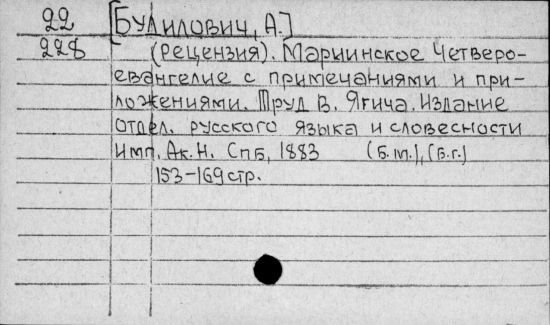 22 [БУДИЛОВИЧ, А.]
228 (Рецензия). Мариинское Четверо-
евангелие с примечаниями и при-
ложениями. Труд В. Ягича. Издание
отдел. русского языка и словесности
имп. Ак. Н. СПБ, 1883 (Б.м.), (Б.г.)
153-169 стр.